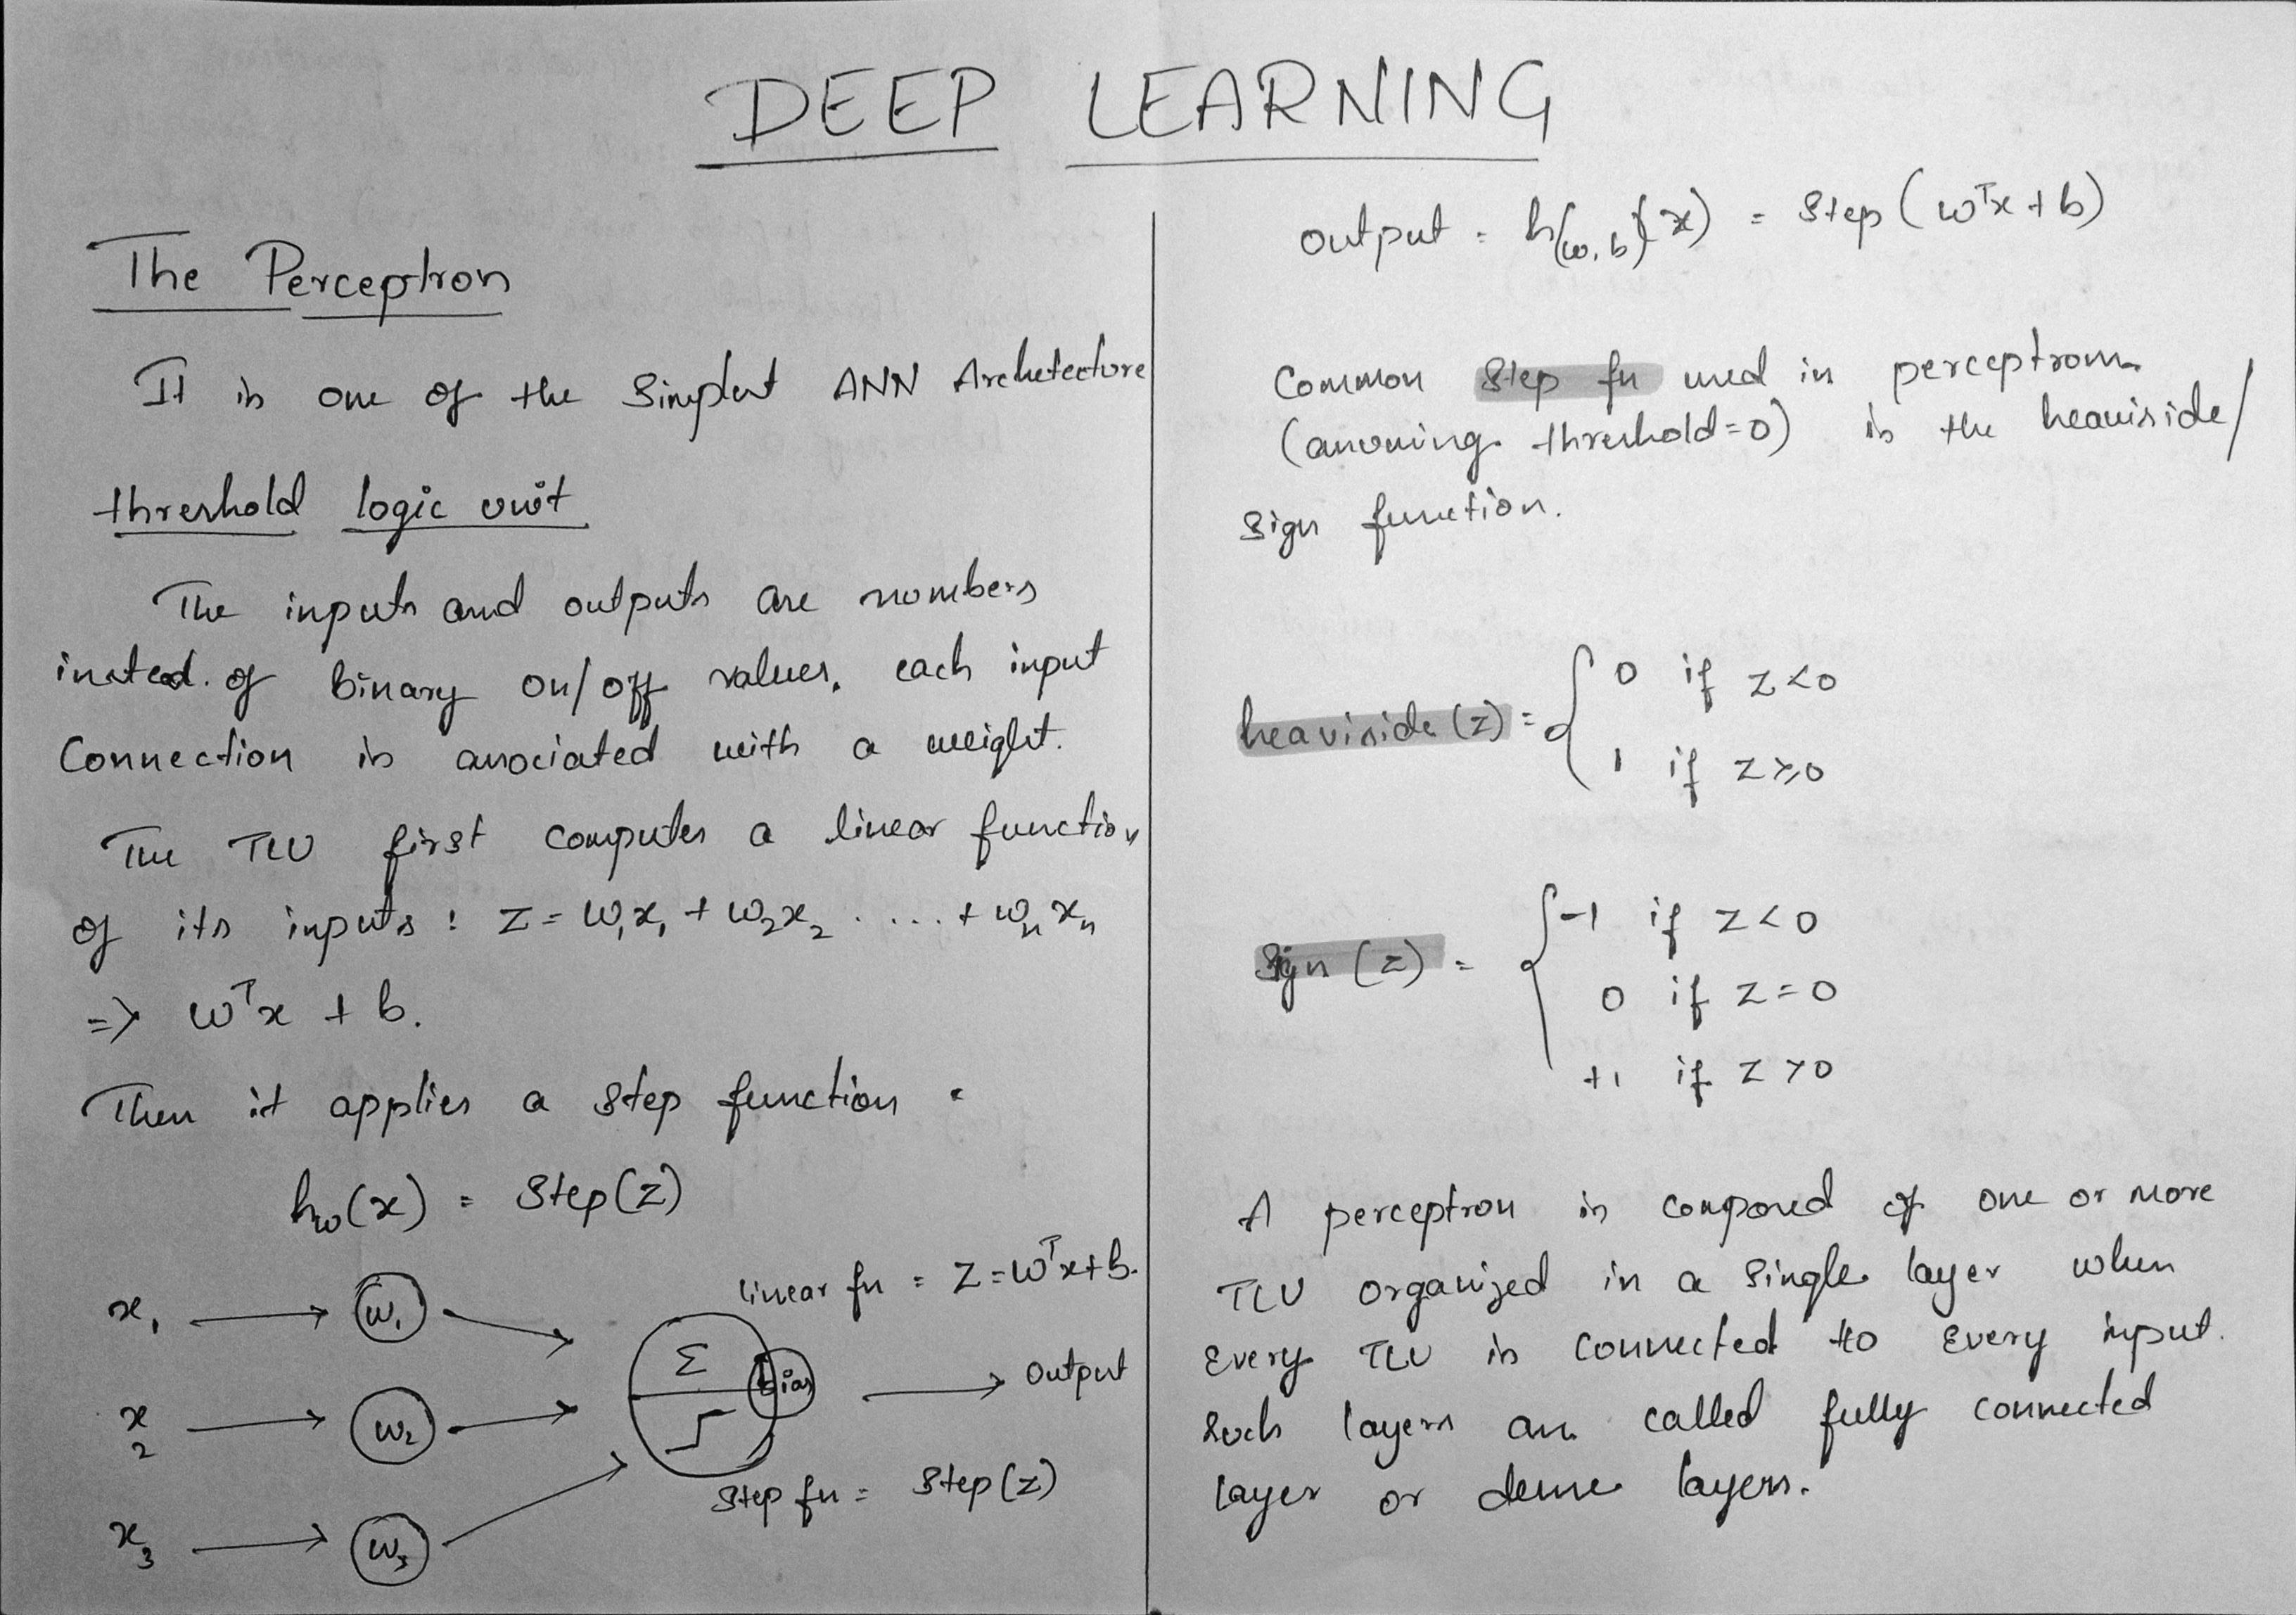 DEEP LEARNING
The Perceptron
It is one of the Simplest ANN Archetecture
threshold logic unit
The inputs and outputs are numbers
instead of binary on/off values. each input
Connection is associated with a weight.
The TLU first computes a linear function
of its inputs : z = w₁x₁ + w₂x₂ ..... + wₙxₙ
=> wᵀx + b.
Then it applies a step function .
h_w(x) = Step(z)
linear fn = z = wᵀx + b.
x₁ w₁
Σ
x₂ w₂ bias Output
Step fn = Step(z)
x₃ w₃
output = h(w,b)(x) = Step (wᵀx + b)
Common Step fn used in perceptrons
(assuming threshold=0) is the heaviside/
Sign function.
heaviside (z) = { 0 if z<0
1 if z≥0
Sign (z) = { -1 if z<0
0 if z=0
+1 if z>0
A perceptron is composed of one or more
TLU organized in a Single layer when
Every TLU is connected to Every input.
Such layers are called fully connected
layer or dense layers.